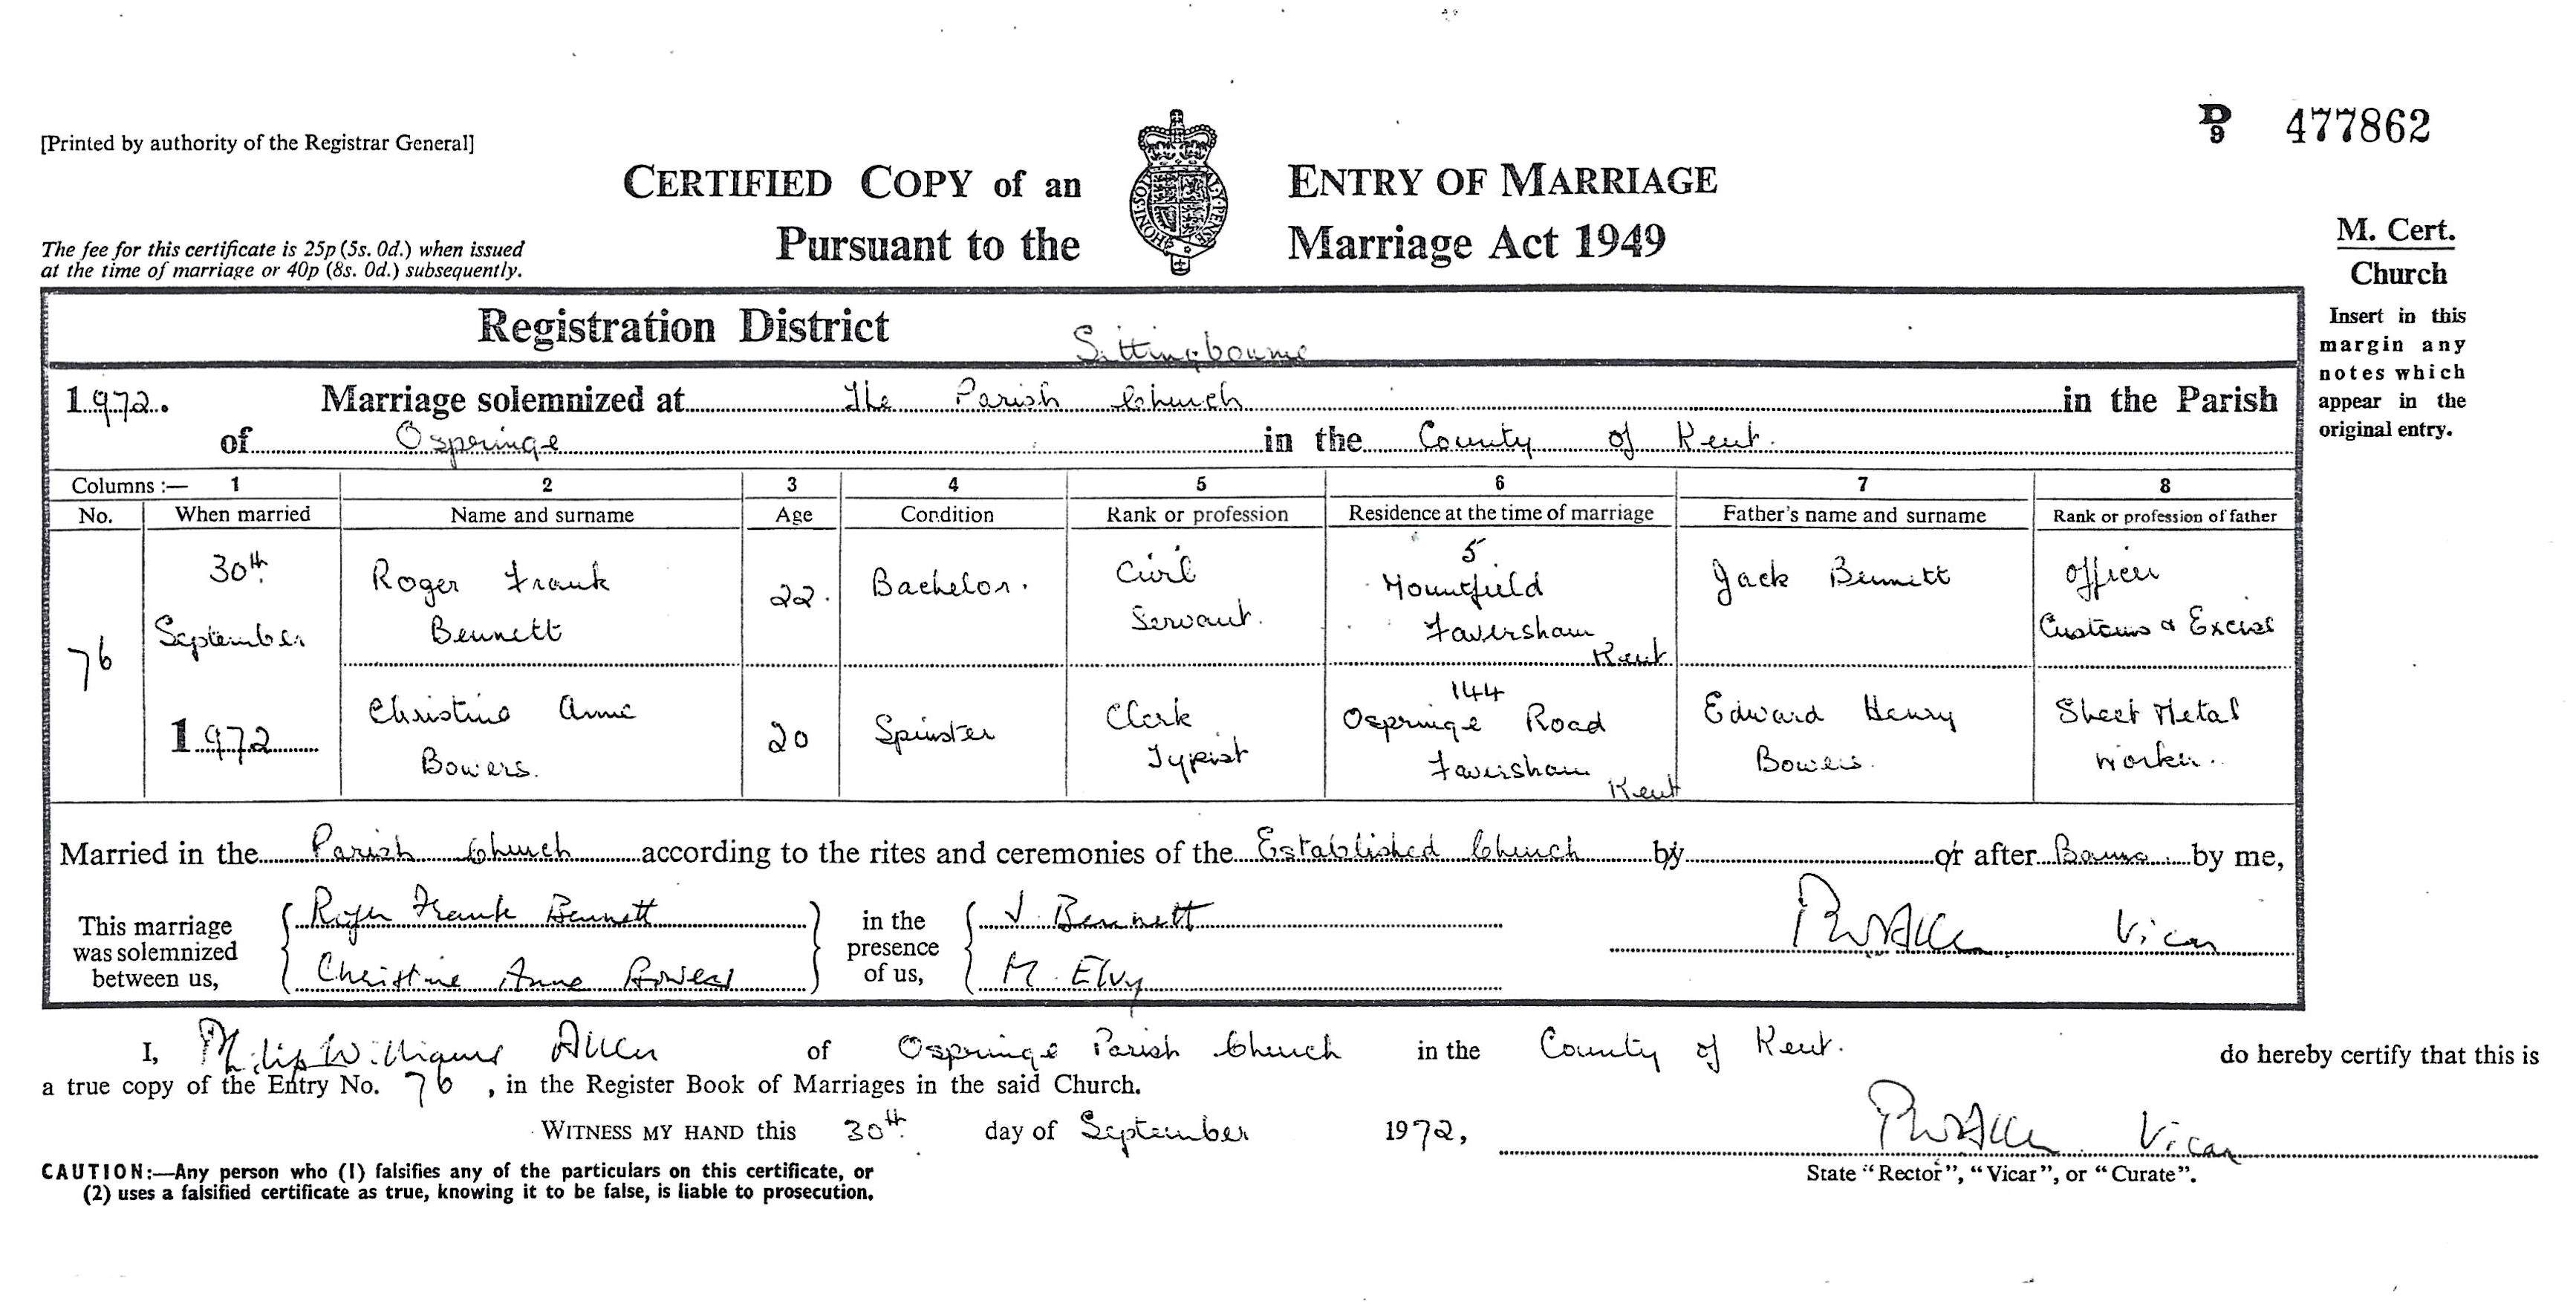 [Printed by authority of the Registrar General]
D 9 477862
CERTIFIED COPY of an ENTRY OF MARRIAGE
Pursuant to the Marriage Act 1949
HONI·SOIT
The fee for this certificate is 25p (5s. 0d.) when issued
at the time of marriage or 40p (8s. 0d.) subsequently.
M. Cert.
Church
Insert in this
margin any
notes which
appear in the
original entry.
Registration District Sittingbourne
1972. Marriage solemnized at The Parish Church in the Parish
of Ospringe in the County of Kent.
Columns :— 1 2 3 4 5 6 7 8
No. When married Name and surname Age Condition Rank or profession Residence at the time of marriage Father's name and surname Rank or profession of father
76
30th
September
1972
Roger Frank
Bennett
22.
Bachelor.
Civil
Servant.
5
Mountfield
Faversham
Kent
Jack Bennett
Officer
Customs & Excise
Christine Anne
Bowers.
20
Spinster
Clerk
Typist
144
Ospringe Road
Faversham
Kent
Edward Henry
Bowers.
Sheet Metal
Worker.
Married in the Parish Church according to the rites and ceremonies of the Established Church by or after Banns by me,
This marriage
was solemnized
between us,
Roger Frank Bennett
Christine Anne Bowers
in the
presence
of us,
J. Bennett
M. Elvy
P W Allen Vicar
I, Philip William Allen of Ospringe Parish Church in the County of Kent. do hereby certify that this is
a true copy of the Entry No. 76, in the Register Book of Marriages in the said Church.
WITNESS MY HAND this 30th day of September 1972, P W Allen Vicar
CAUTION:—Any person who (1) falsifies any of the particulars on this certificate, or
(2) uses a falsified certificate as true, knowing it to be false, is liable to prosecution.
State "Rector", "Vicar", or "Curate".